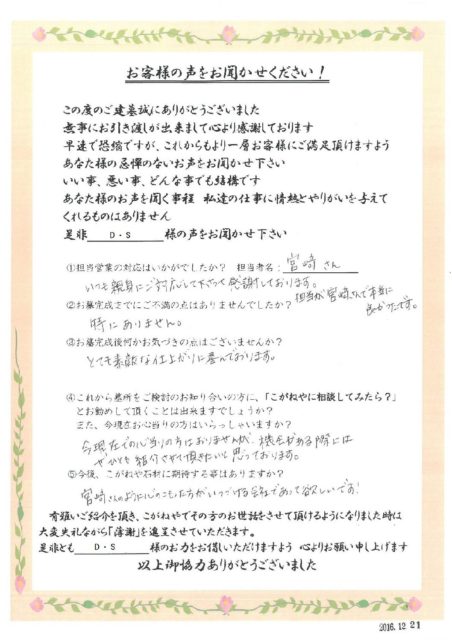 お客様の声をお聞かせください！
この度のご建墓誠にありがとうございました
無事にお引き渡しが出来まして心より感謝しております
早速で恐縮ですが、これからもより一層お客様にご満足頂けますよう
あなた様の忌憚のないお声をお聞かせ下さい
いい事、悪い事、どんな事でも結構です
あなた様のお声を聞く事程 私達の仕事に情熱とやりがいを与えて
くれるものはありません
是非 D・S 様の声をお聞かせ下さい
①担当営業の対応はいかがでしたか？ 担当者名：宮崎さん
いつも親身にご対応して下さって感謝しております。
担当が宮崎さんで本当に
良かったです。
②お墓完成までにご不満の点はありませんでしたか？
特にありません。
③お墓完成後何かお気づきの点はございませんか？
とても素敵な仕上がりに喜んでおります。
④これから墓所をご検討のお知り合いの方に、「こがねやに相談してみたら？」
とお勧めして頂くことは出来ますでしょうか？
また、今現在お心当りの方はいらっしゃいますか？
今現在での心当りの方はおりませんが、機会がある際には
ぜひとも紹介させて頂きたいと思っております。
⑤今後、こがねや石材に期待する事はありますか？
宮崎さんのように心のこもった方がいつづける会社であって欲しいです！
有難いご紹介を頂き、こがねやでその方のお世話をさせて頂けるようになりました時は
大変失礼ながら「薄謝」を進呈させていただきます。
是非とも D・S 様のお力をお貸しいただけますよう 心よりお願い申し上げます
以上御協力ありがとうございました
2016.12.21